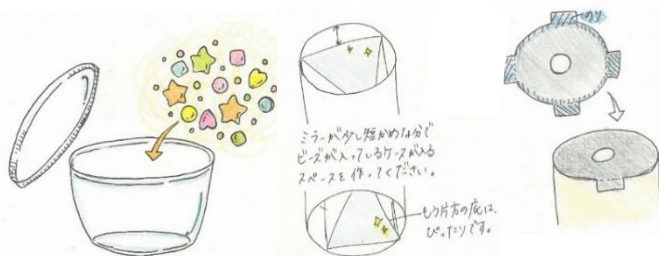 ミラーが少し短かめな分で
ビーズが入っているケースが入る
スペースを作ってください。
もう片方の底は、
ぴったりです。
のり